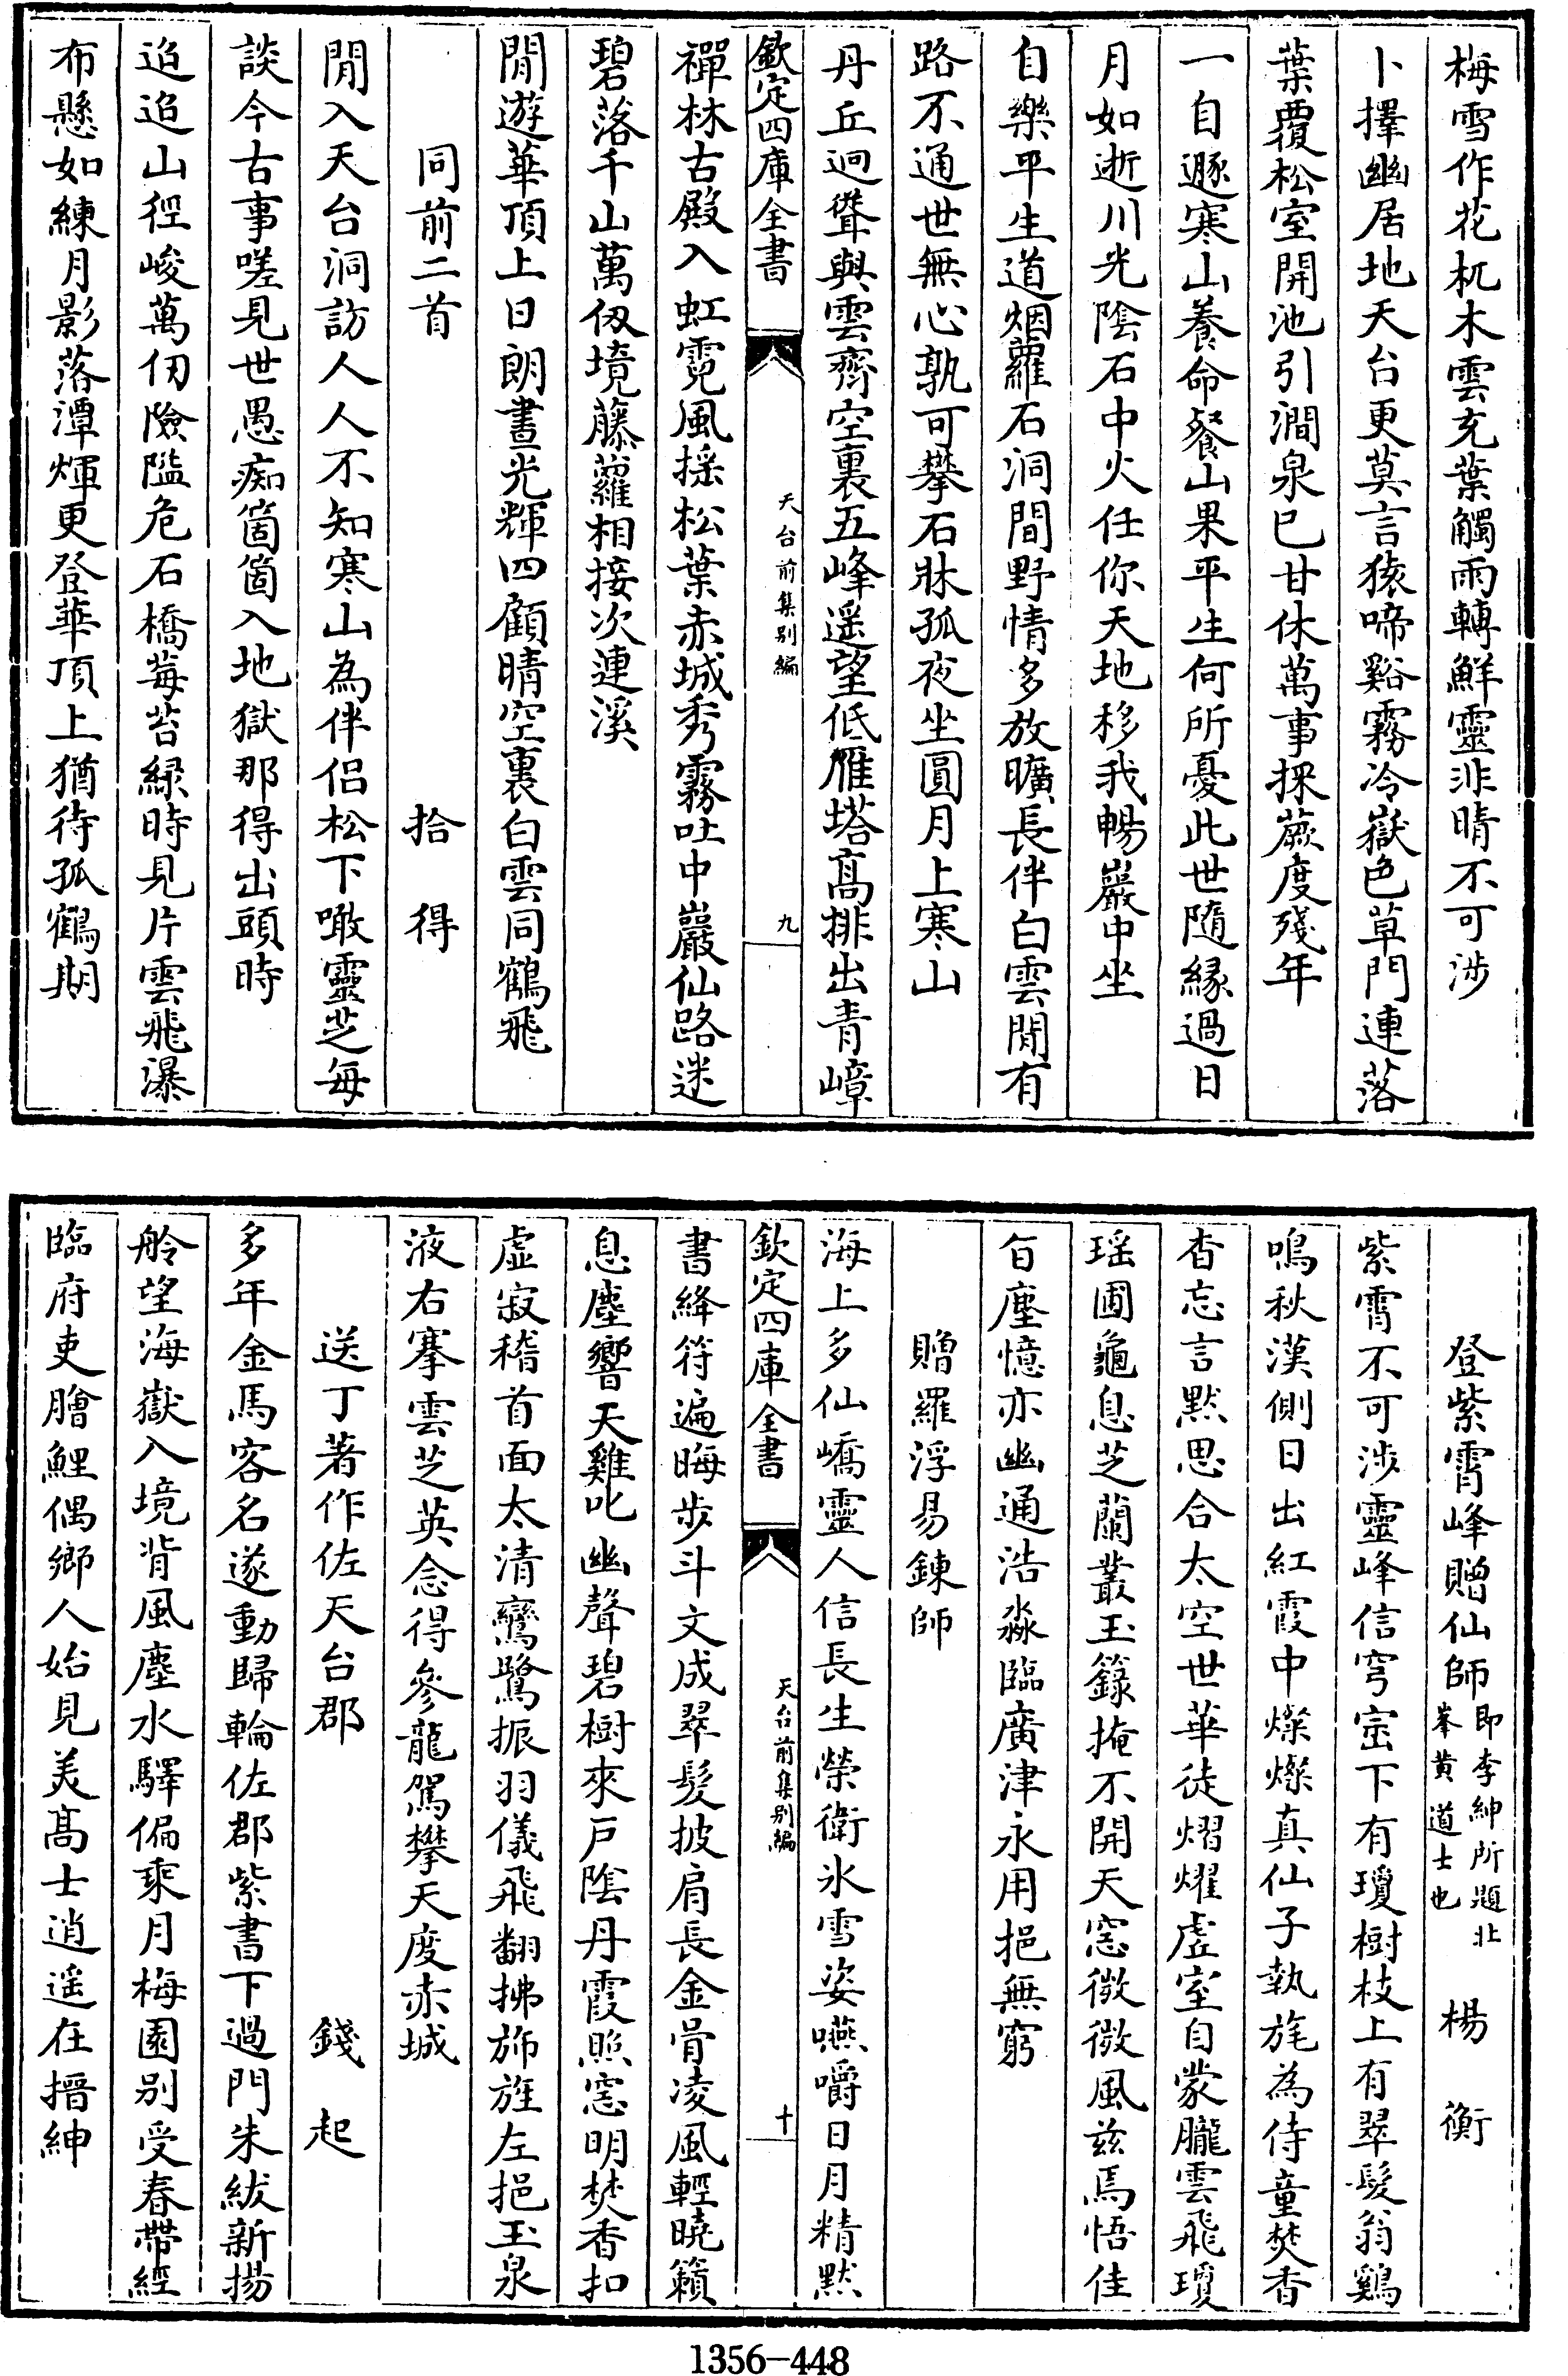 梅雪作花杌木雲充葉觸雨轉鮮靈非晴不可涉
卜擇幽居地天台更莫言猿啼谿霧冷嶽色草門連落
葉覆松室開池引澗泉已甘休萬事採蕨度殘年
一自遯寒山養命餐山果平生何所憂此世隨緣過日
月如逝川光陰石中火任你天地移我暢巖中坐
自樂平生道烟蘿石洞間野情多放曠長伴白雲閒有
路不通世無心孰可攀石牀孤夜坐圓月上寒山
丹丘迥聳與雲齊空裏五峰遥望低雁塔髙排出青嶂
欽定四庫全書
天台前集别編
九
禪林古殿入虹霓風揺松葉赤城秀霧吐中巖仙路迷
碧落千山萬仭境藤蘿相接次連溪
閒遊華頂上日朗晝光輝四顧晴空裏白雲同鶴飛
同前二首 拾得
閒入天台洞訪人人不知寒山為伴侣松下噉靈芝每
談今古事嗟見世愚痴箇箇入地獄那得出頭時
迢迢山徑峻萬仞險隘危石橋莓苔緑時見片雲飛瀑
布懸如練月影落潭煇更登華頂上猶待孤鶴期
登紫霄峰贈仙師即李紳所題北峯黄道士也 楊衡
紫霄不可涉靈峰信穹崈下有瓊樹枝上有翠髮翁鷄
鳴秋漢側日出紅霞中燦燦真仙子執旄為侍童焚香
杳忘言黙思合太空世華徒熠燿虚室自蒙朧雲飛瓊
瑶圃龜息芝蘭叢玉籙掩不開天窓微微風兹焉悟佳
旨塵憶亦幽通浩淼臨廣津永用挹無窮
贈羅浮易鍊師
海上多仙嶠靈人信長生榮衛氷雪姿嚥嚼日月精黙
欽定四庫全書
天台前集别編
十
書絳符遍晦步斗文成翠髮披肩長金骨凌風輕曉籟
息塵響天雞叱幽聲碧樹來戸陰丹霞照窓明焚香扣
虚寂稽首面太清鸞鷺振羽儀飛翻拂斾旌左挹玉泉
液右搴雲芝英念得參龍駕攀天度赤城
送丁著作佐天台郡 錢起
多年金馬客名遂動歸輪佐郡紫書下過門朱紱新揚
舲望海嶽入境背風塵水驛偏乘月梅園别受春帶經
臨府吏膾鯉偶鄉人始見美髙士逍遥在搢紳
1356-448